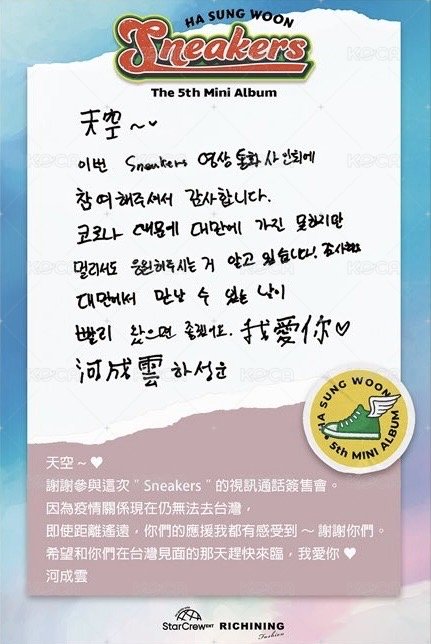 HA SUNG WOON
Sneakers
The 5th Mini Album
天空~
이번 Sneakers 영상통화 사인회에
참여해주셔서 감사합니다.
코로나 때문에 대만에 가진 못하지만
멀리서도 응원해주시는 거 알고 있습니다. 감사해요
대만에서 만날 수 있는 날이
빨리 왔으면 좋겠어요. 我愛你♡
河成雲 하성운
HA SUNG WOON
5th MINI ALBUM
天空~♥
謝謝參與這次"Sneakers"的視訊通話簽售會。
因為疫情關係現在仍無法去台灣,
即使距離遙遠,你們的應援我都有感受到~謝謝你們。
希望和你們在台灣見面的那天趕快來臨,我愛你♥
河成雲
StarCrew ENT RICHINING
Fashion